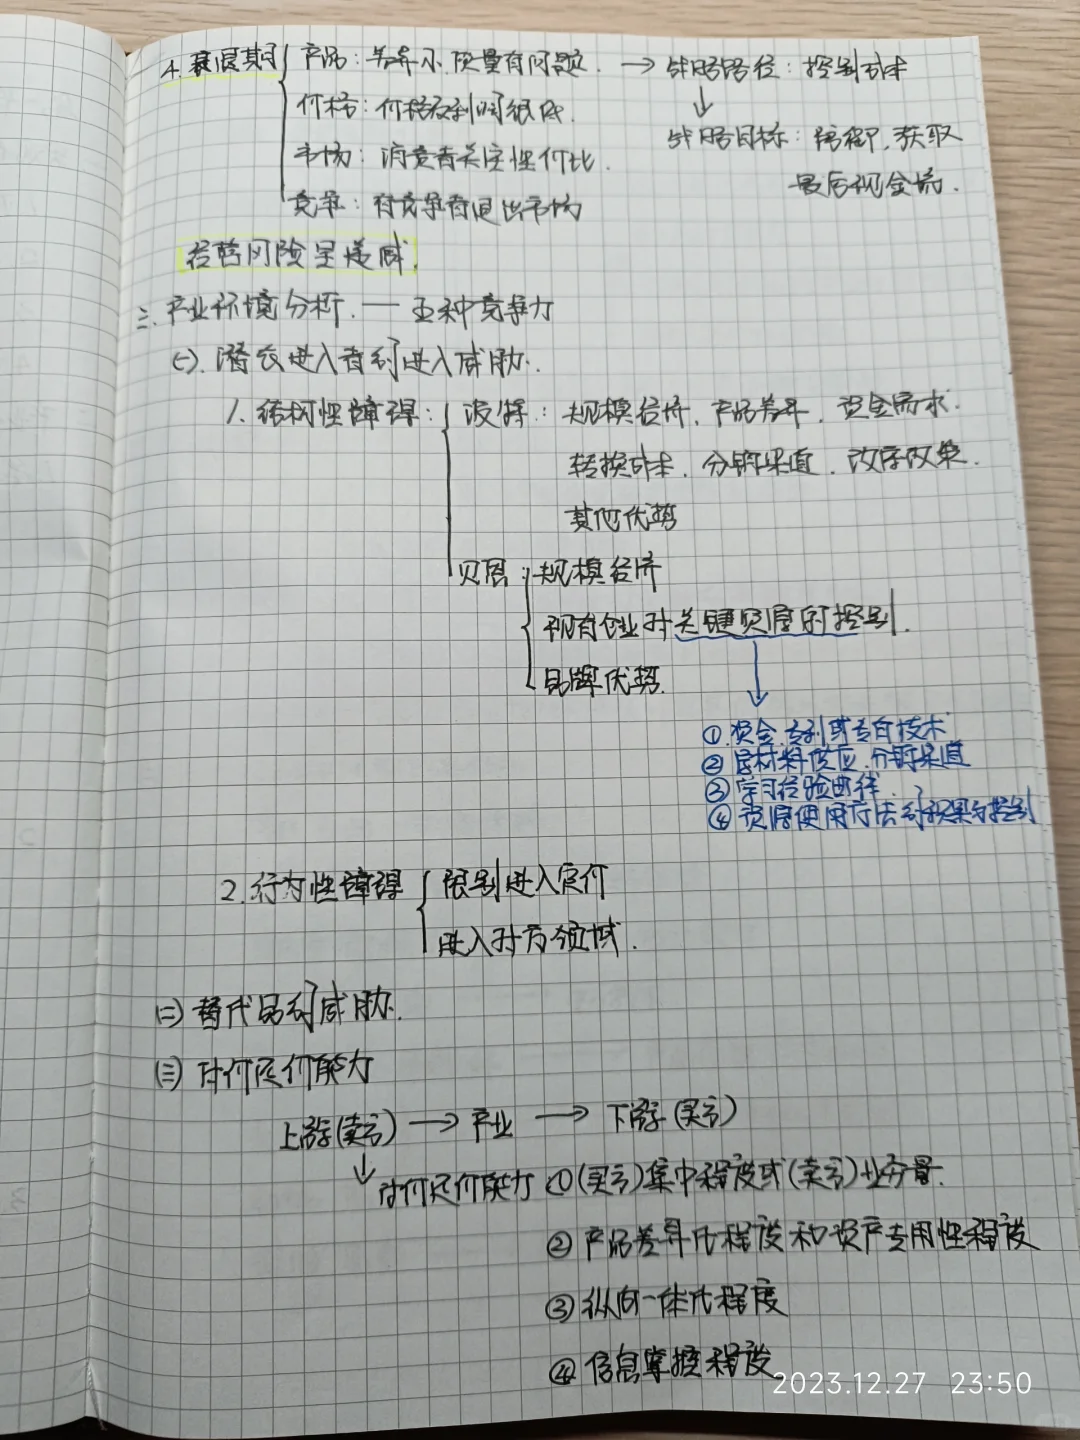 4. 衰退期 产品：差异小.质量有问题. → 战略路径：控制成本
价格：价格及利润很低. ↓
战略目标：防御，获取
市场：消费者关注性价比. 最后现金流.
竞争：有竞争者退出市场
经营风险呈递减.
三. 产业环境分析. — 五种竞争力
(一). 潜在进入者的进入威胁.
1. 结构性障碍：波特：规模经济、产品差异、资金需求.
转换成本、分销渠道、政府政策.
其他优势
贝恩：规模经济
现有企业对关键资源的控制.
品牌优势.
↓
①资金.专利或专有技术
②原材料供应.分销渠道
③学习经验曲线.
④资源使用方法的积累与控制
2. 行为性障碍 限制进入定价
进入对方领域.
(二) 替代品的威胁.
(三) 讨价还价能力
上游(卖方) → 产业 → 下游(买方)
↓
讨价还价能力 ①(买方)集中程度或(卖方)业务量.
②产品差异化程度和资产专用性程度
③纵向一体化程度
④信息掌握程度
2023.12.27 23:50